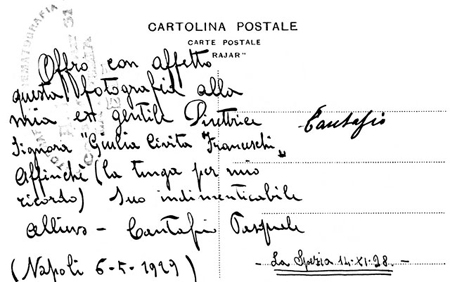 CARTOLINA POSTALE
CARTE POSTALE
RAJAR"
Offro con affetto
questa fotografia alla
mia ex gentile Direttrice
Signora "Giulia Civita Franceschi"
Affinchè (la tenga per mio
ricordo) Suo indimenticabile
Allievo - Cantafio Pasquale
(Napoli 6-5-1929)
Cantafio
La Spezia 14-XI-28-